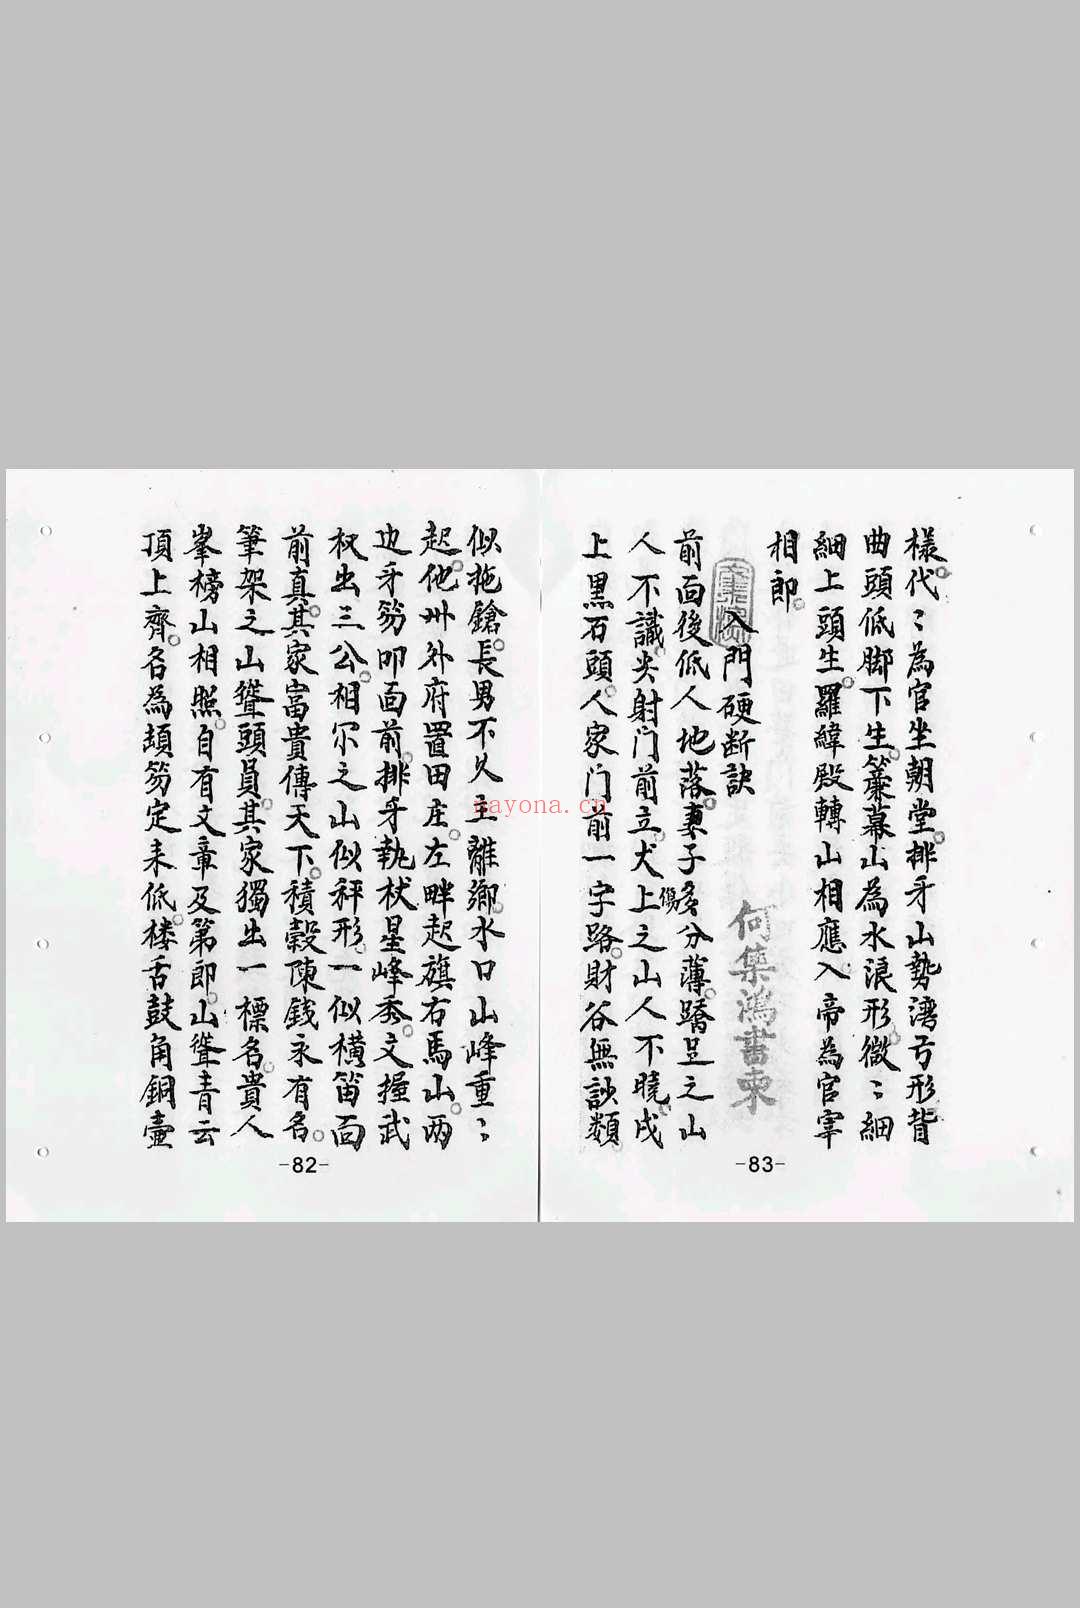 樣代〻為官坐朝堂排牙山勢湾弓形背
曲頭低脚下生簾幕山為水浪形微〻細
細上頭生羅緯殿轉山相應入帝為官宰
相郎
入門硬断訣
何集鴻書柬
前面後低人地落妻子多分薄蹻足之山
人不識尖射门前立犬上之山人不曉戌
傷
上黑石頭人家门前一字路財谷無訬類
-83-
似拖鎗長男不久主離鄉水口山峰重〻
起他州外府置田庄左畔起旗右馬山两
边牙笏叩面前排牙執杖星峰秀文握武
权出三公相尔之山似秤形一似横笛面
前真其家富貴傳天下積穀陳銭永有名
筆架之山聳頭員其家獨出一標名貴人
峯榜山相照自有文章及第郎山聳青云
頂上齊名為頡笏定未低楼舌鼓角銅壺
-82-
nayona.cn